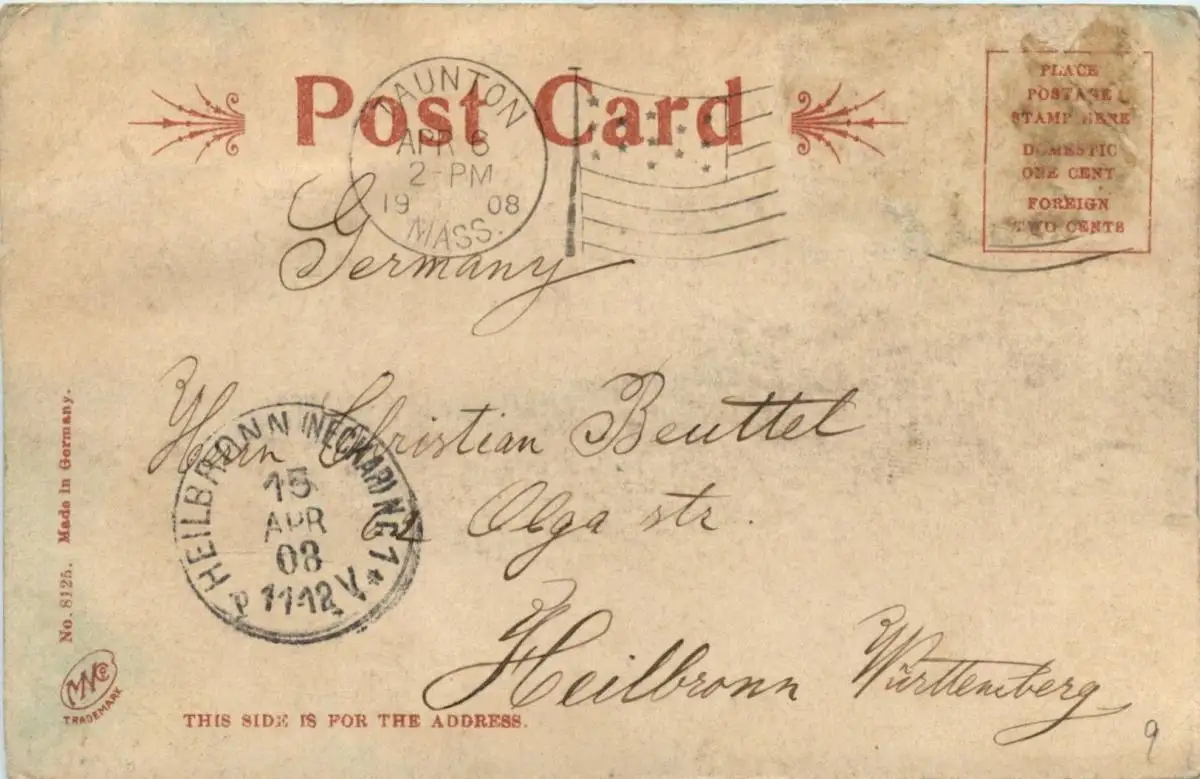 Post Card
TAUNTON
APR 6
2-PM
19 08
MASS.
PLACE
POSTAGE
STAMP HERE
DOMESTIC
ONE CENT
FOREIGN
TWO CENTS
Germany
Herrn Christian Beuttel
Olga str.
Heilbronn Württemberg
HEILBRONN (NECKAR) No 1
15
APR
08
11-12 V
No. 8125. Made in Germany.
TRADEMARK
THIS SIDE IS FOR THE ADDRESS.
9